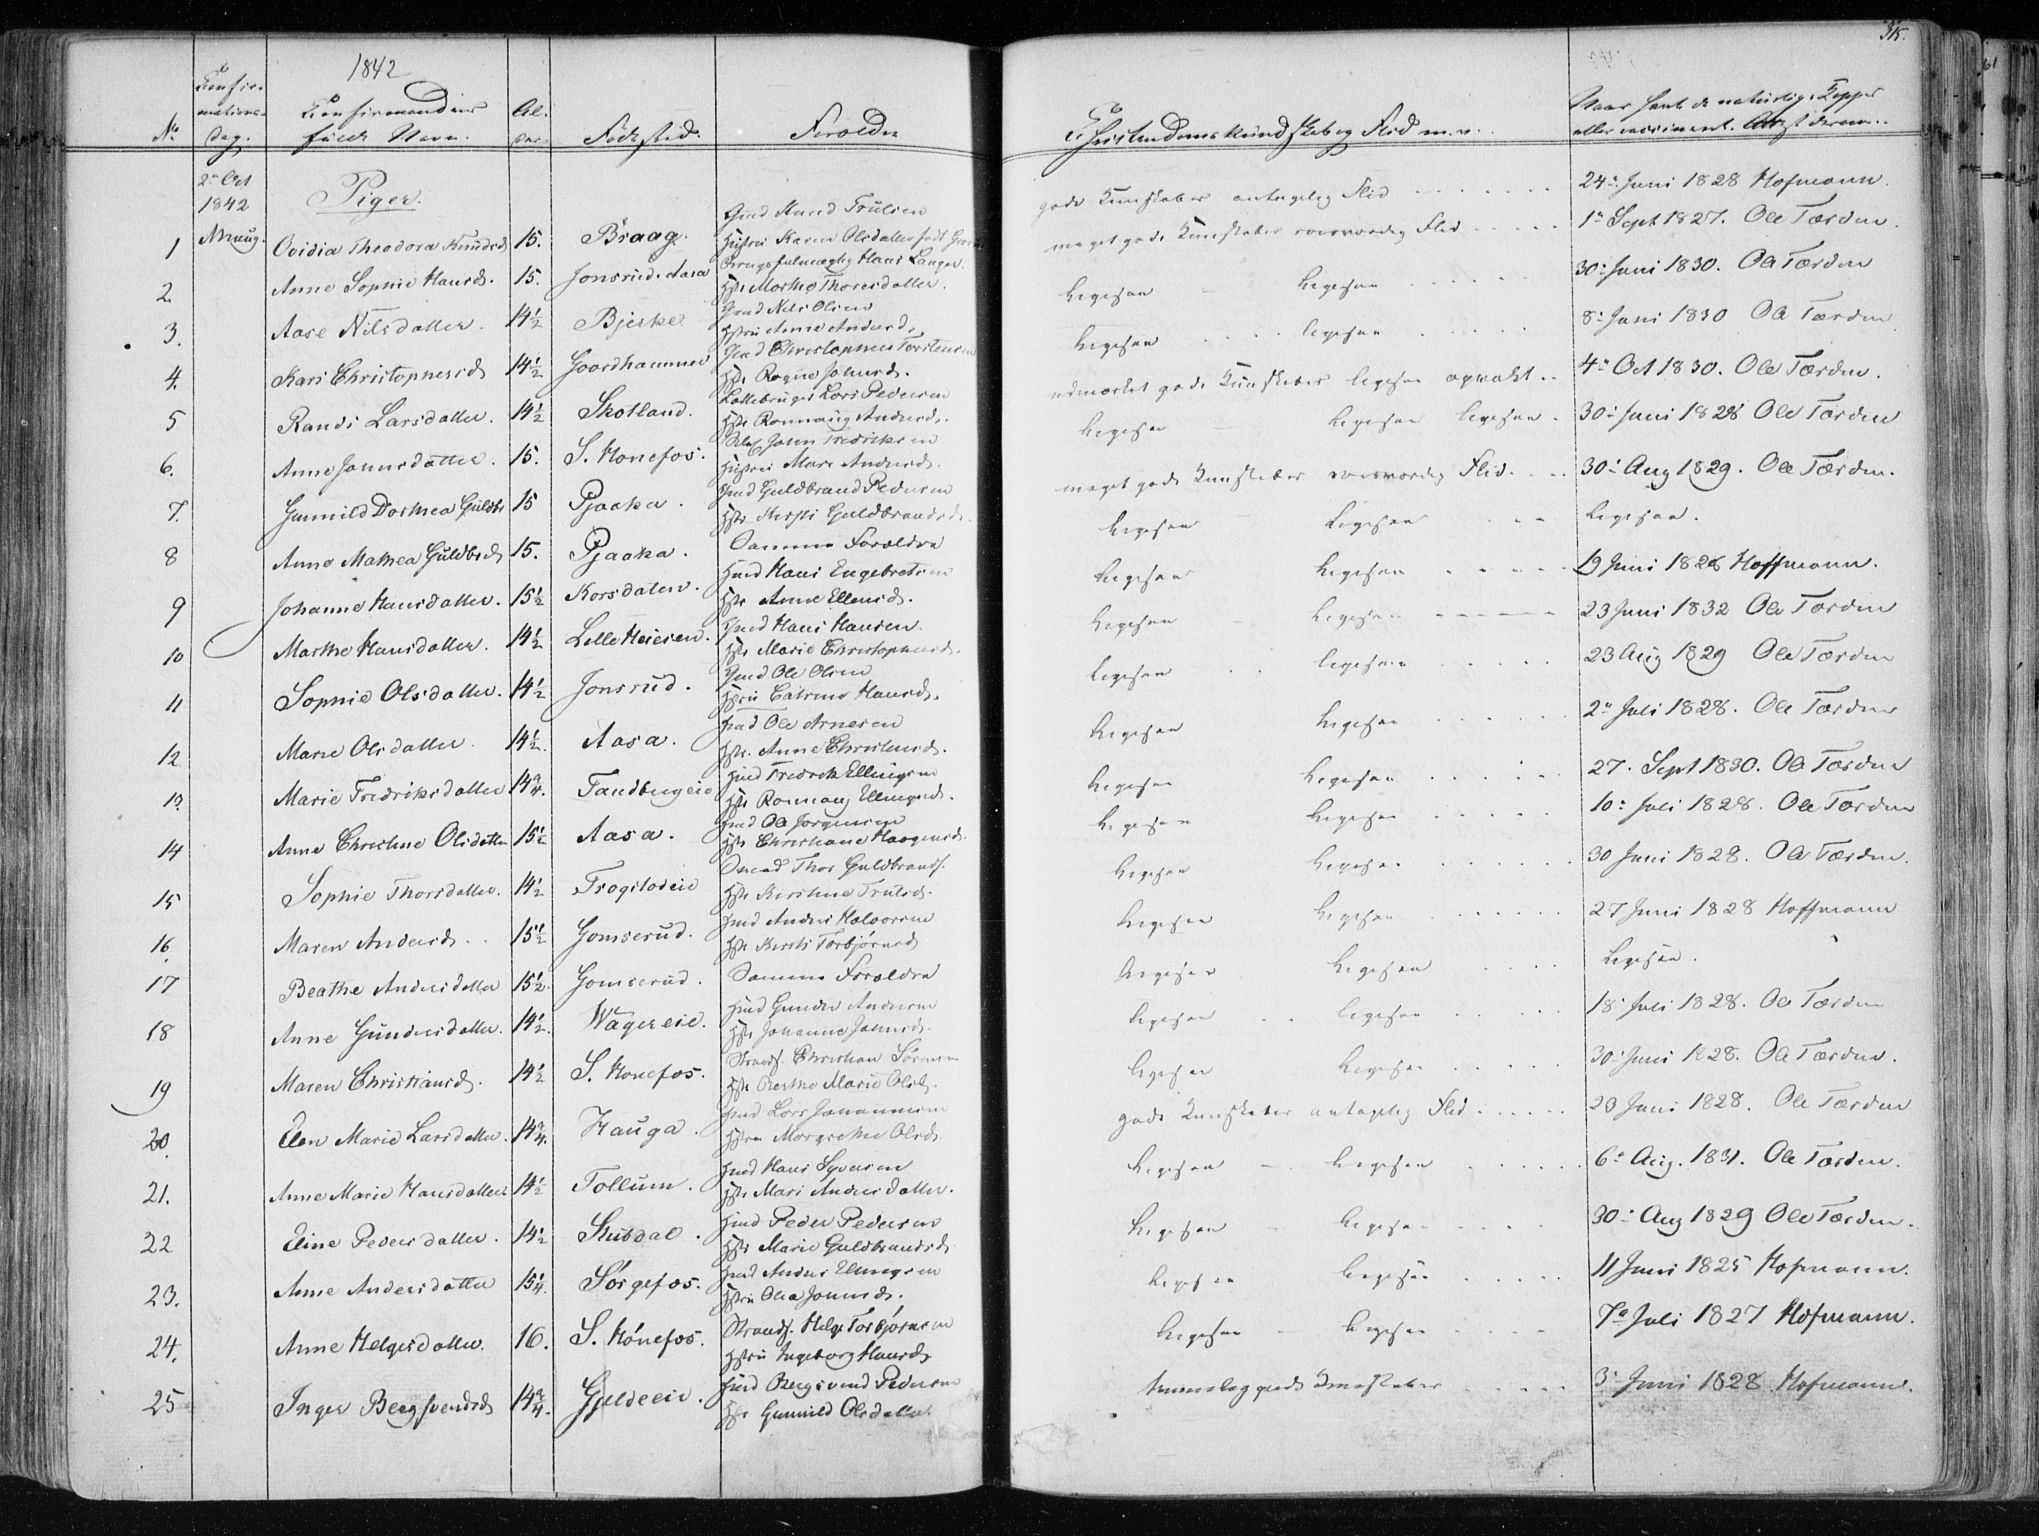 1842
315.
No
Confir-
mations-
dag.
Confirmandens
fulde Navn.
Al-
der.
Födested.
Forældre
Christendomskundskab og Flid m.v.
Naar havt de naturlige Kopper
eller vaccineret. Attest derom.
2n Oct
1842
Piger.
1 Ovidia Theodora Knudsd 15. Braag. Gmd Knud Trulsen
Hustru Karen Olsdatter
gode Kunskaber antagelig Flid
24n Juni 1828 Hofmann.
2. Anne Sophie Hansd. 15. Jonsrud. Aasa
Hstr Marthe Thoresdatter.
meget gode Kunskaber Flid
1n Sept 1827. Ole Tærden
3. Aase Nilsdatter. 14½ Bjerke Gmd Nils Olsen
Hstru Anne Andersd.
Ligesaa Ligesaa
30n Juni 1830. Ole Tærden
4. Kari Christophersd 14½ Gaardhammer Gmd Christopher Torstensen
Hstr Ragne Johnsd.
Ligesaa Ligesaa
8n Juni 1830 Ole Tærden
5 Randi Larsdatter. 14½ Skotland. Lars Pedersen
Hstr Ronnaug Andersd.
udmærket gode Kunskaber ligesaa
4n Oct 1830. Ole Tærden.
6. Anne Johnsdatter. 15. S. Honefos. John Fredriksen
Hustru Mari Andersd.
Ligesaa Ligesaa ligesaa
30n Juni 1828 Ole Tærden
7. Gunnild Dorthea Guldb 15 Pjaaka. Hmd Guldbrand Pedersen
Hstr Kirsti Guldbrandsd.
meget gode Kunskaber Flid.
30n Aug 1829. Ole Tærden.
8 Anne Mathea Guldbd 15. Pjaaka. Samme Forældre
Ligesaa Ligesaa
Ligesaa.
9 Johanne Hansdatter. 15½ Korsdalen. Hmd Hans Engebretsen
Hstr Anne Ellensd.
Ligesaa Ligesaa
19 Juni 1828 Hoffmann.
10 Marthe Hansdatter. 14½ Lille Heiesen. Gmd Hans Hansen.
Hstr Marie Christophersd.
Ligesaa Ligesaa
23 Juni 1832 Ole Tærden
11 Sophie Olsdatter. 14½ Jonsrud. Gmd Ole Olsen
Hstru Catrine Hansd.
Ligesaa ligesaa
23 Aug 1829 Ole Tærden
12 Marie Olsdatter. 14½. Aasa. Hmd Ole Arnesen
Hstr. Anne Christensd.
Ligesaa Ligesaa
2n Juli 1828. Ole Tærden
13. Marie Fredriksdatter 14¾. Tandbergeie Hmd Fredrik Ellingsen
Hstr Ronnaug Ellingsd.
Ligesaa Ligesaa
27. Sept 1830. Ole Tærden
14 Anne Christine Olsdatter 15½ Aasa. Hmd Ole Jorgensen
Hstr Christiane Haagensd.
Ligesaa Ligesaa
10n Juli 1828. Ole Tærden
15 Sophie Thorsdatter. 14½ Trogstadeie Thor Guldbrands.
Hstr Kirstine Trulsd.
Ligesaa Ligesaa
30 Juni 1828. Ole Tærden.
16. Maren Andersd. 15½ Gomserud. Hmd Anders Halvorsen
Hstr Kirsti Torbjørnsd
Ligesaa Ligesaa
27 Juni 1828 Hoffmann
17 Beathe Andersdatter 15½. Gomserud. Samme Forældre
Ligesaa Ligesaa
Ligesaa.
18 Anne Gundersdatter. 14½. Wågereie. Hmd Gunder Andersen
Hstr Johanne Johnsd.
Ligesaa ligesaa
18n Juli 1828. Ole Tærden
19 Maren Christiansd. 14½ S. Honefos. Strands. Christian Sörensen
Hstr Berthe Marie Olsd.
Ligesaa Ligesaa
30n Juni 1828. Ole Tærden.
20. Elen Marie Larsdatter. 14¾. Hauga. Gmd Lars Johannesen
Hstru Margrethe Olsd.
gode Kunskaber antagelig Flid.
20 Juni 1828. Ole Tærden
21. Anne Marie Hansdatter 14½ Tollum. Hmd Hans Syversen
Hstr Mari Andersdatter.
Ligesaa Ligesaa
6n Aug. 1831. Ole Tærden.
22 Eline Pedersdatter. 14½ Skusdal. Hmd Peder Pedersen
Hstr Marie Guldbrandsd.
Ligesaa Ligesaa
30n Aug 1829 Ole Tærden.
23. Anne Andersdatter 15¼. Sörgefos. Hmd Anders Ellingsen
Hstru Olia Johnsd.
Ligesaa Ligesaa
11 Juni 1825 Hofmann.
24. Anne Helgesdatter. 16. S. Hónefos. Strands. Helge Torbjørnsen
Hstru Ingeborg Hansd.
Ligesaa Ligesaa
7n Juli 1827 Hofmann.
25 Inger Bergsvendsd 14¾. Gjeldeeie. Hmd Bergsvend Pedersen
Hstr Gunnild Olsdatter.
temmelig gode Kunskaber
3n Juni 1828 Hofmann.